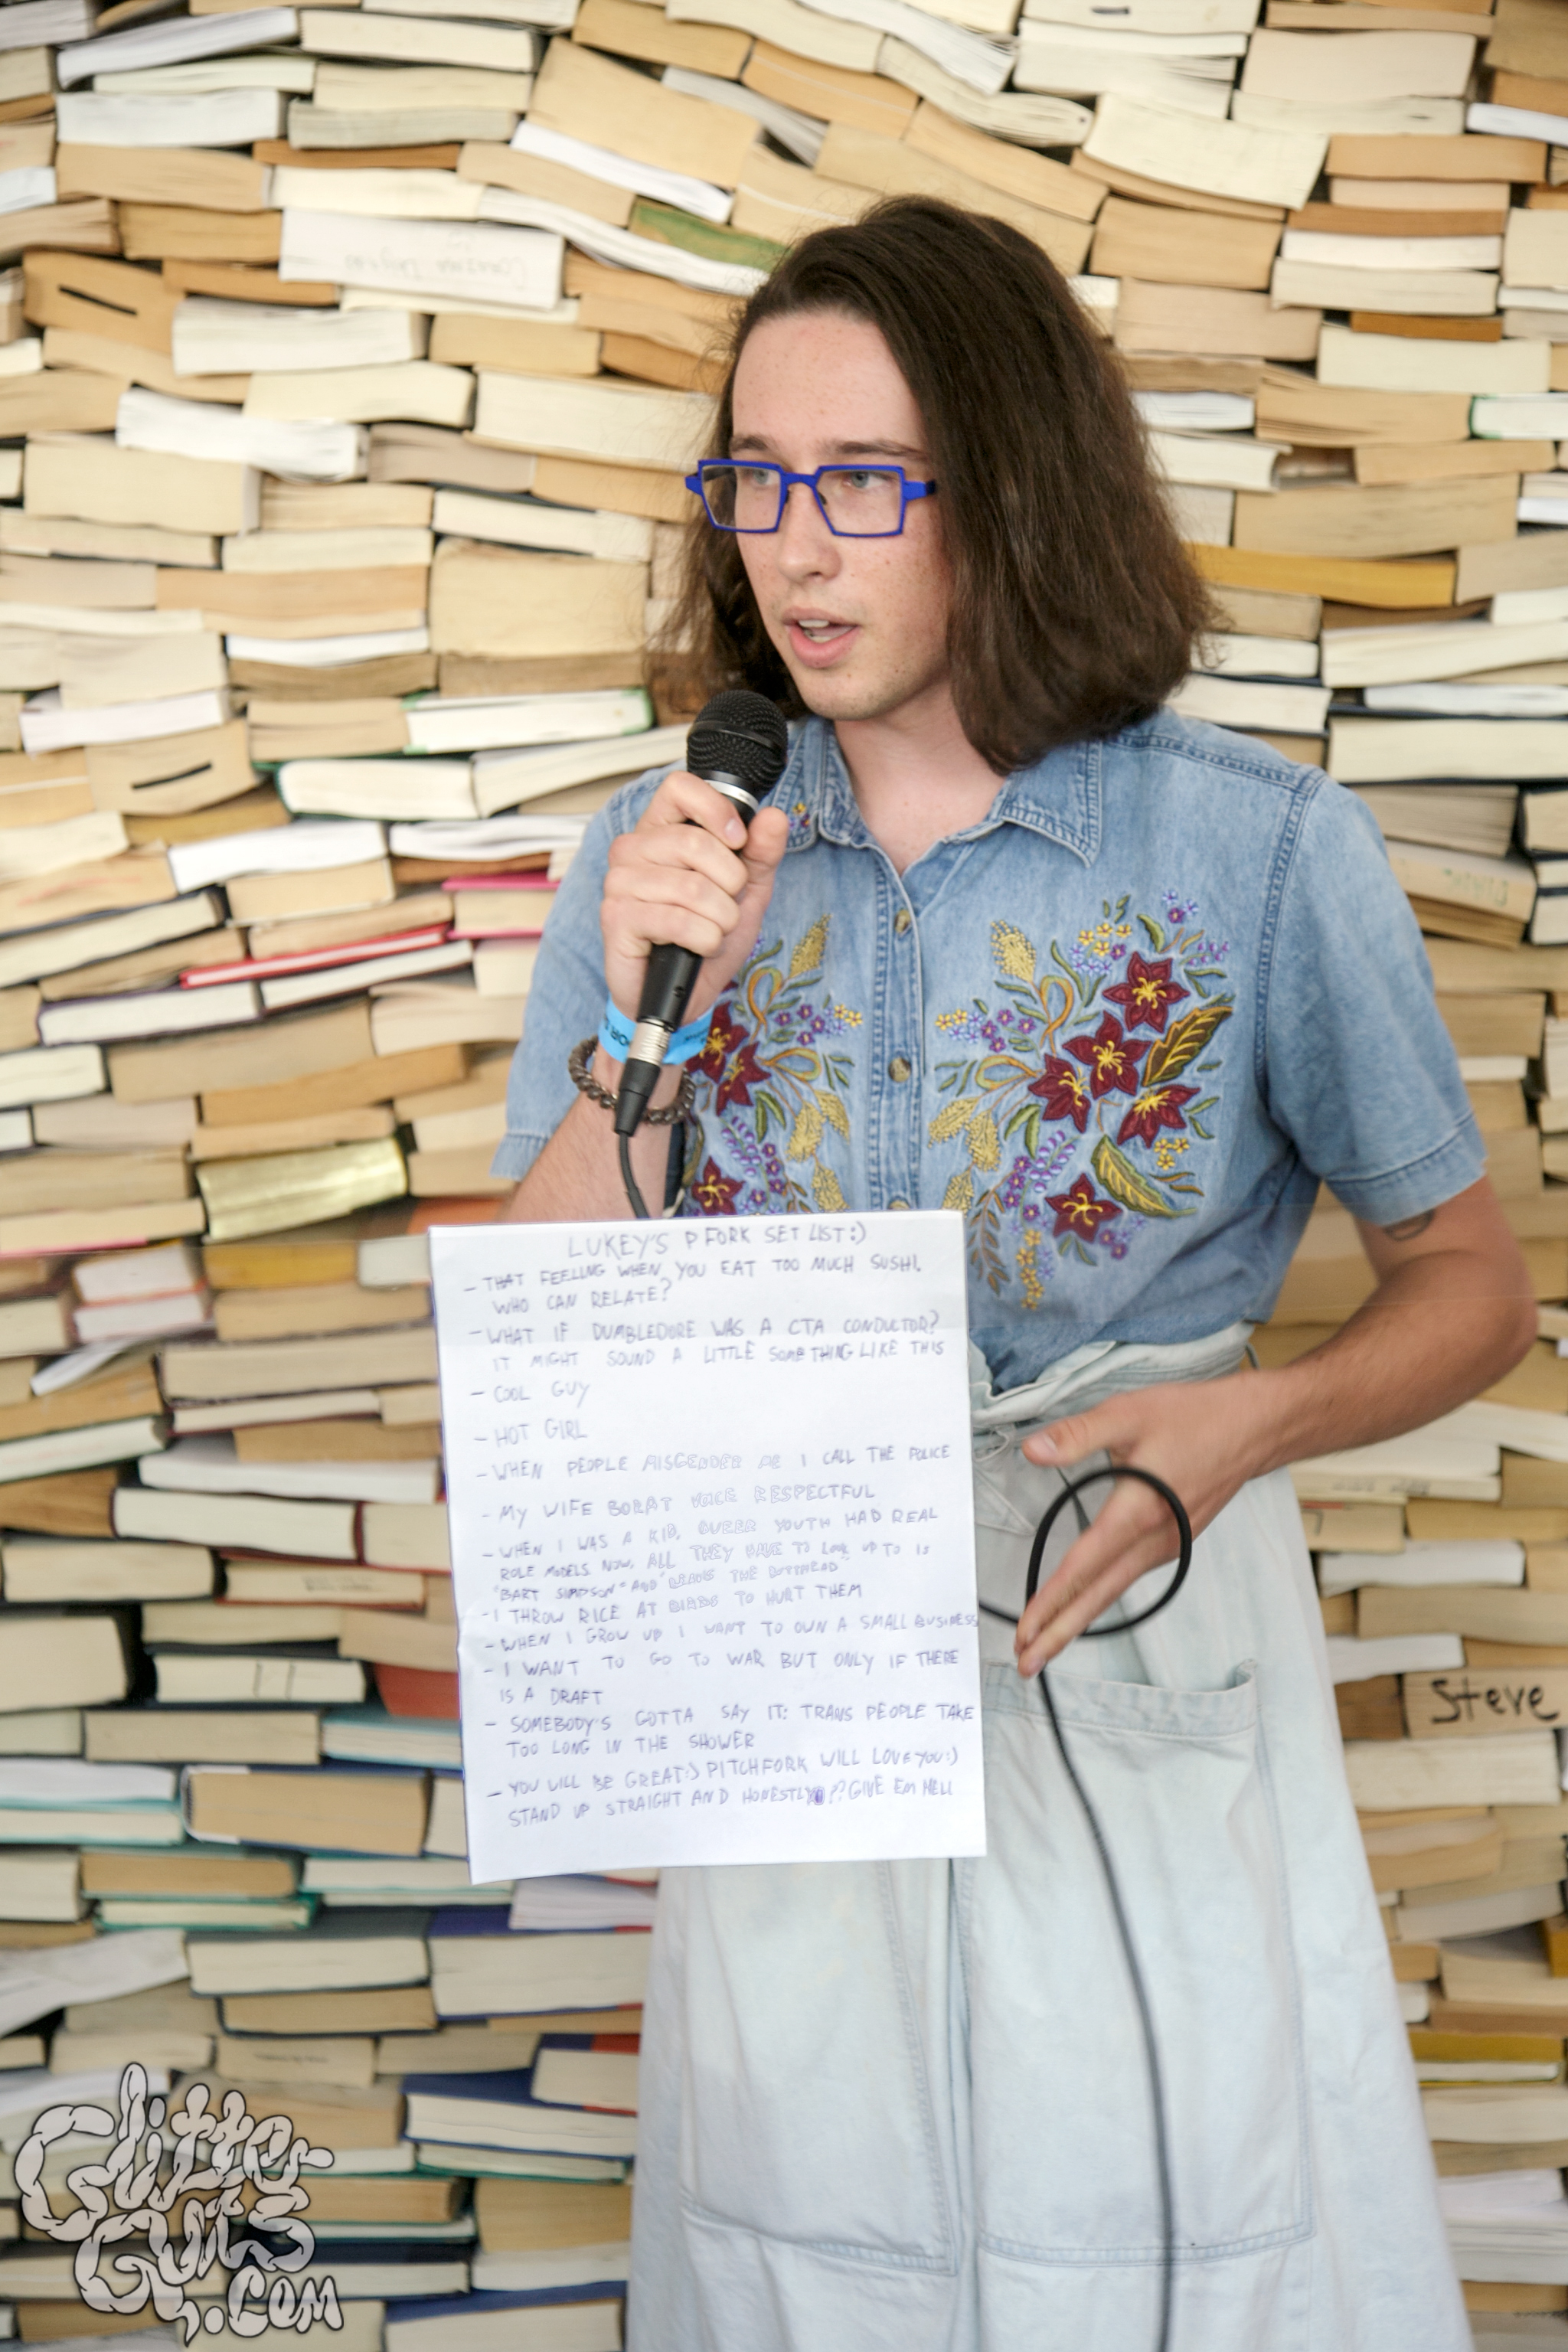 LUKEY'S P FORK SET LIST:)
- THAT FEELING WHEN YOU EAT TOO MUCH SUSHI.
WHO CAN RELATE?
- WHAT IF DUMBLEDORE WAS A CTA CONDUCTOR?
IT MIGHT SOUND A LITTLE SOMETHING LIKE THIS
- COOL GUY
- HOT GIRL
- WHEN PEOPLE MISGENDER ME I CALL THE POLICE
- MY WIFE BORAT VOICE RESPECTFUL
- WHEN I WAS A KID, QUEER YOUTH HAD REAL
ROLE MODELS. NOW, ALL THEY HAVE TO LOOK UP TO IS
"BART SIMPSON" AND THE BUTTHEAD"
- I THROW RICE AT BIRDS TO HURT THEM
- WHEN I GROW UP I WANT TO OWN A SMALL BUSINESS
- I WANT TO GO TO WAR BUT ONLY IF THERE
IS A DRAFT
- SOMEBODY'S GOTTA SAY IT: TRANS PEOPLE TAKE
TOO LONG IN THE SHOWER
- YOU WILL BE GREAT:) PITCHFORK WILL LOVE YOU:)
STAND UP STRAIGHT AND HONESTLY?? GIVE EM HELL
Steve
Glitter
Guts
.COM